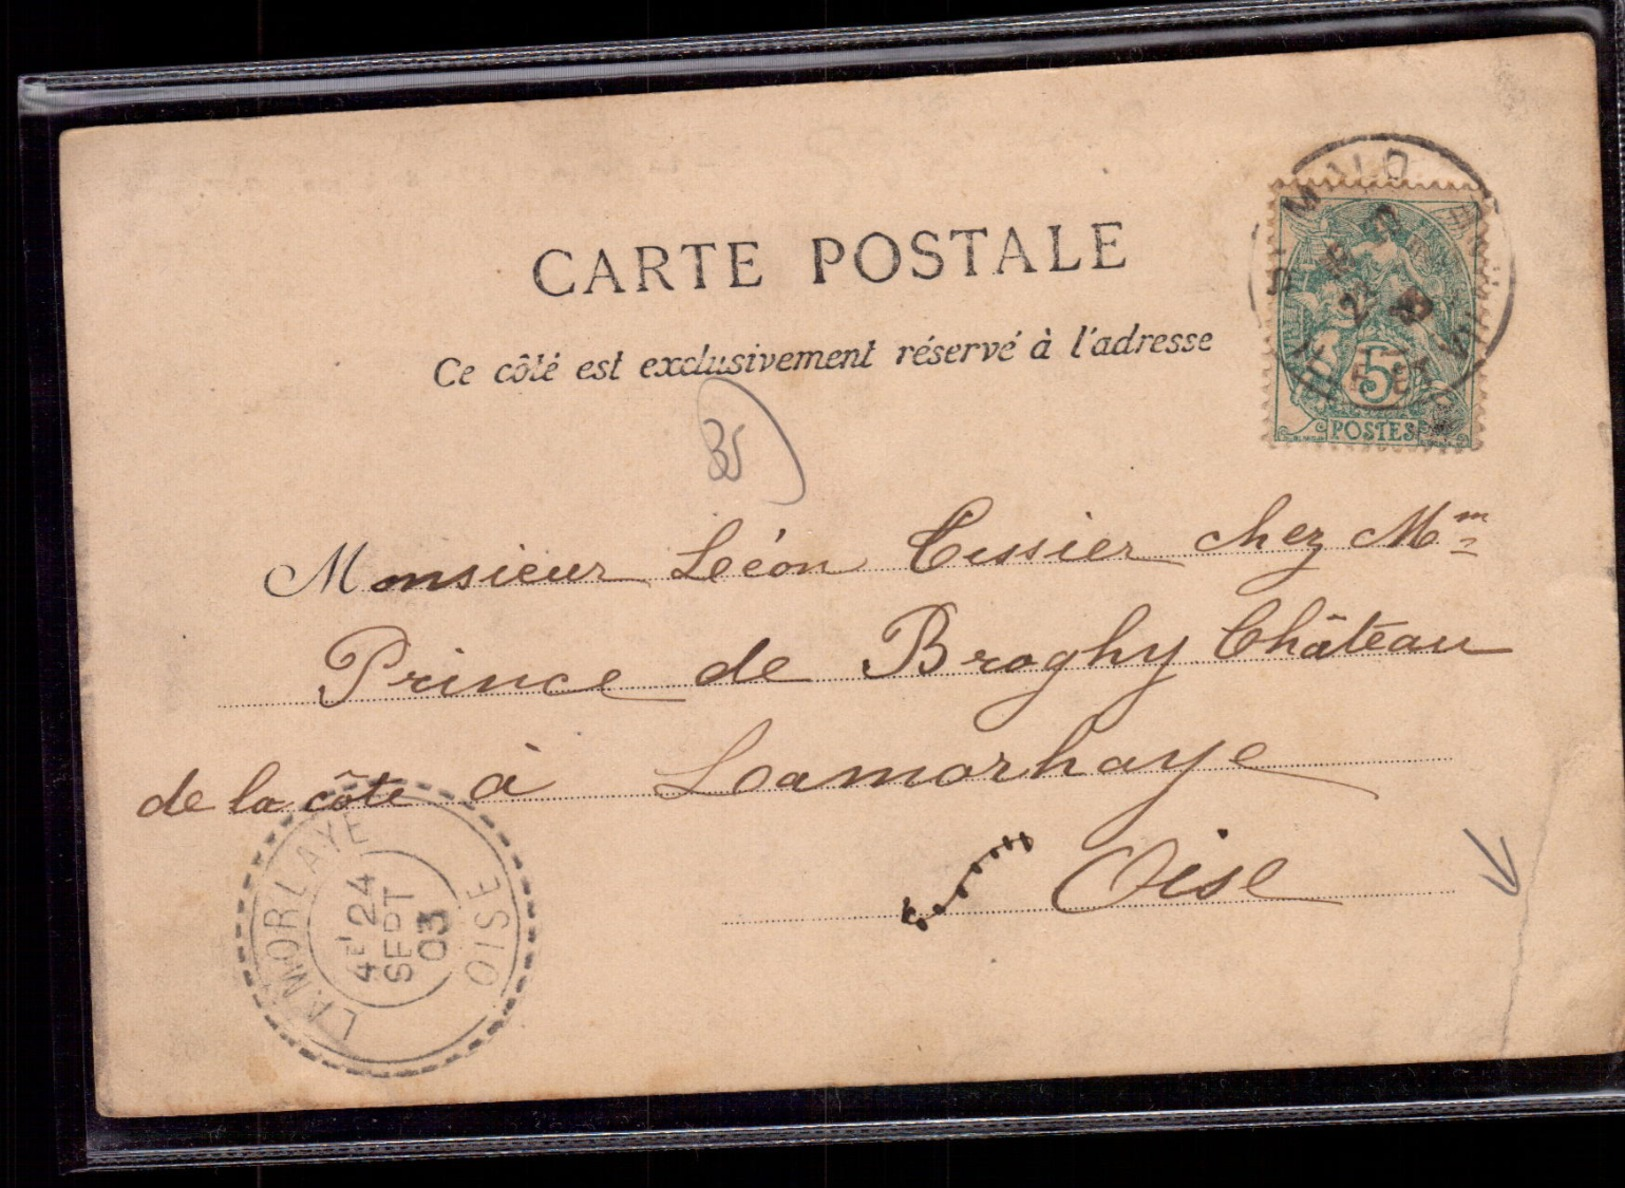 CARTE POSTALE
Ce côté est exclusivement réservé à l'adresse
35
5
POSTES
Monsieur Léon Tessier chez Mm
Prince de Broghy Château
de la côte à Lamorhaye
Oise
LAMORLAYE
4E 24
SEPT
03
OISE